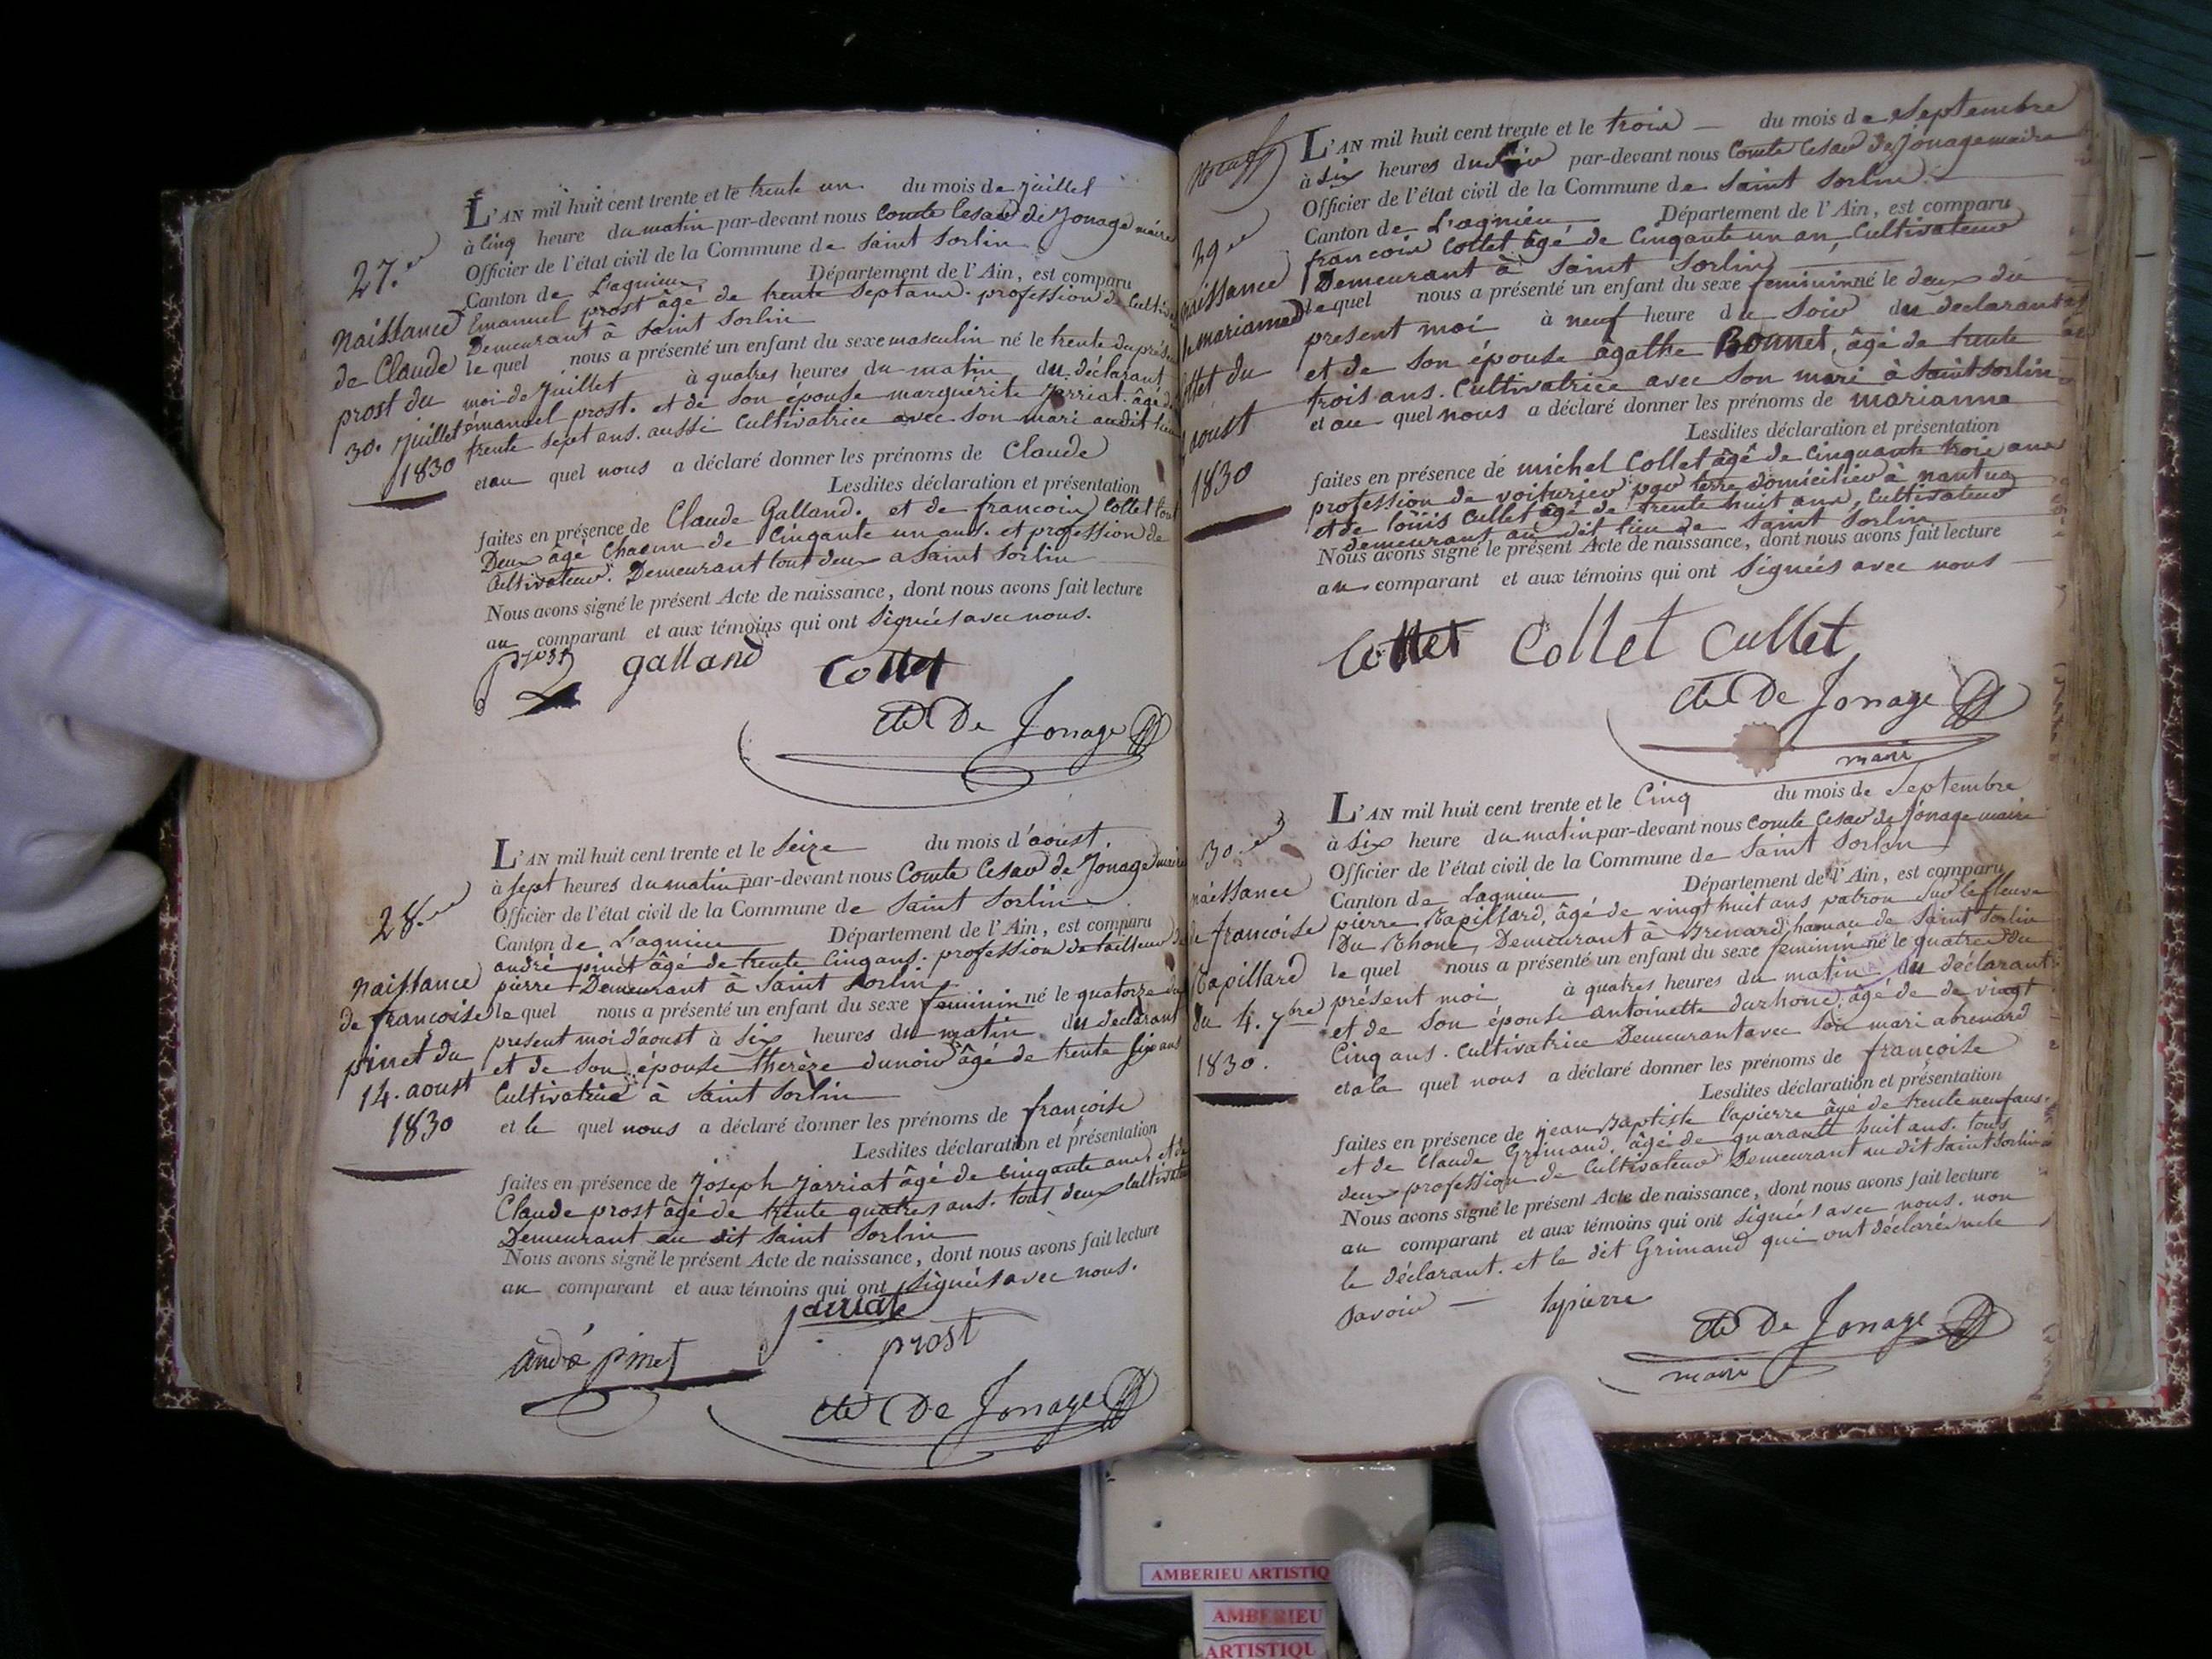 27.e
Naissance
de Claude
prost du
30. juillet
1830
L'AN mil huit cent trente et le trente un du mois de juillet
à Cinq heure du matin par-devant nous Comte Cesar de Jonage maire
Officier de l'état civil de la Commune de Saint Sorlin
Canton de L'agnieu Département de l'Ain, est comparu
Emanuel prost âgé de trente Sept ans. profession de Cultiv
Demeurant à Saint Sorlin
le quel nous a présenté un enfant du sexe masculin né le trente du présent
moi de Juillet à quatres heures du matin du déclarant
émanuel prost. et de son épouse marguérite Jarriat. âgé de
trente sept ans. aussi Cultivatrice avec son mari audit lieu
et au quel nous a déclaré donner les prénoms de Claude
Lesdites déclaration et présentation
faites en présence de Claude Galland. et de francois Collet tout
Deux âgé Chacun de Cinqante un ans. et profession de
Cultivateur. Demeurant tout deux a Saint Sorlin
Nous avons signé le présent Acte de naissance, dont nous avons fait lecture
au comparant et aux témoins qui ont Signéés avec nous.
prost galland Collet
Cte De Jonage
28.e
Naissance
de françoise
pinet du
14. aoust
1830
L'AN mil huit cent trente et le Seize du mois d'aoust.
à sept heures du matin par-devant nous Comte Cesar de Jonage maire
Officier de l'état civil de la Commune de Saint Sorlin
Canton de L'agnieu Département de l'Ain, est comparu
andré pinet âgé de trente Cinq ans. profession de tailleur de
pierre Demeurant à Saint Sorlin
le quel nous a présenté un enfant du sexe feminin né le quatorze du
present moi d'aoust à Six heures du matin du déclarant
et de son épouse thérèse dunoir âgé de trente Six ans
Cultivatrice à Saint Sorlin
et le quel nous a déclaré donner les prénoms de françoise
Lesdites déclaration et présentation
faites en présence de Joseph Jarriat âgé de Cinqante ans, et de
Claude prost âgé de trente quatres ans. tout deux Cultivate
Demeurant au dit Saint Sorlin
Nous avons signé le présent Acte de naissance, dont nous avons fait lecture
au comparant et aux témoins qui ont Signéés avec nous.
jarriat
andré pinet prost
Cte De Jonage
29.e
naissance
de marianne
Collet du
aoust
1830
L'AN mil huit cent trente et le trois du mois de Septembre
à Six heures du par-devant nous Comte Cesar De Jonage maire
Officier de l'état civil de la Commune de Saint Sorlin
Canton de L'agnieu Département de l'Ain, est comparu
francois Collet âgé de Cinqante un an, Cultivateur
Demeurant à Saint Sorlin
le quel nous a présenté un enfant du sexe feminin né le deux du
present moi à neuf heure du Soir du déclarant
et de son épouse âgathe Bonnet, âgé de trente
trois ans. Cultivatrice avec son mari à Saint Sorlin
et au quel nous a déclaré donner les prénoms de marianne
Lesdites déclaration et présentation
faites en présence de michel Collet âgé de Cinquante trois ans
profession de voiturier par terre domicilier à nantua
et de loüis Cullet âgé de trente huit ans, Cultivateur
demeurant au dit lieu de Saint Sorlin
Nous avons signé le présent Acte de naissance, dont nous avons fait lecture
au comparant et aux témoins qui ont Signéés avec nous
Collet Collet Cullet
Cte De Jonage
maire
30.e
naissance
de françoise
Rapillard
du 4. 7bre
1830.
L'AN mil huit cent trente et le Cinq du mois de Septembre
à Six heure du matin par-devant nous Comte Cesar de Jonage maire
Officier de l'état civil de la Commune de Saint Sorlin
Canton de Lagnieu Département de l'Ain, est comparu
pierre Rapillard, âgé de vingt huit ans patron sur le fleuve
Du Rhone, Demeurant à hamau de Saint Sorlin
le quel nous a présenté un enfant du sexe feminin né le quatre du
présent moi à quatres heures du matin du déclarant
et de son épouse antoinette durhone, âgé de de vingt
Cinq ans. Cultivatrice Demeurant avec son mari
et a la quel nous a déclaré donner les prénoms de françoise
Lesdites déclaration et présentation
faites en présence de jean Baptiste Lapierre âgé de trente neuf ans.
et de Claude Grimand, âgé de quarante huit ans. tous
deux profession de Cultivateur Demeurant au dit Saint Sorlin
Nous avons signé le présent Acte de naissance, dont nous avons fait lecture
au comparant et aux témoins qui ont signéés avec nous. non
le déclarant. et le dit Grimand qui ont déclaré ne le
savoir lapierre
Cte De Jonage
maire
AMBERIEU ARTISTIQ
AMBERIEU
ARTISTIQU